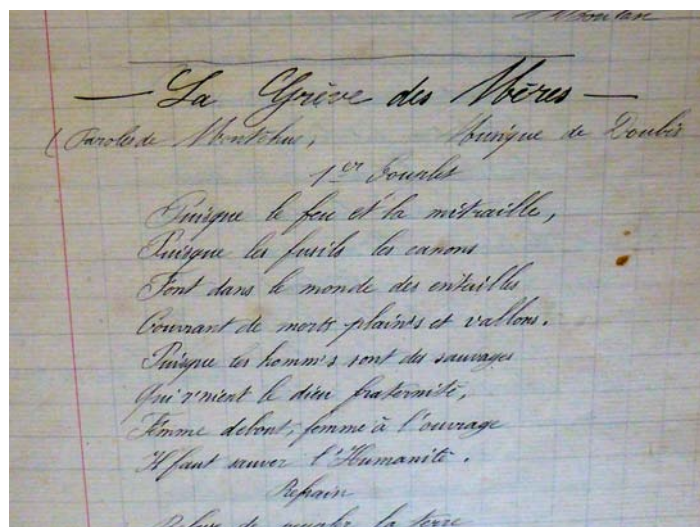 — La Grève des Mères —
( Paroles de Montéhus, Musique de Doubis
1er Couplet
Puisque le feu et la mitraille,
Puisque les fusils les canons
Font dans le monde des entailles
Couvrant de morts plain's et vallons.
Puisque les homm's sont des sauvages
Qui r'nient le dieu fraternité,
Femme debout, femme à l'ouvrage
Il faut sauver l'Humanité.
Refrain
Refuse de peupler la terre